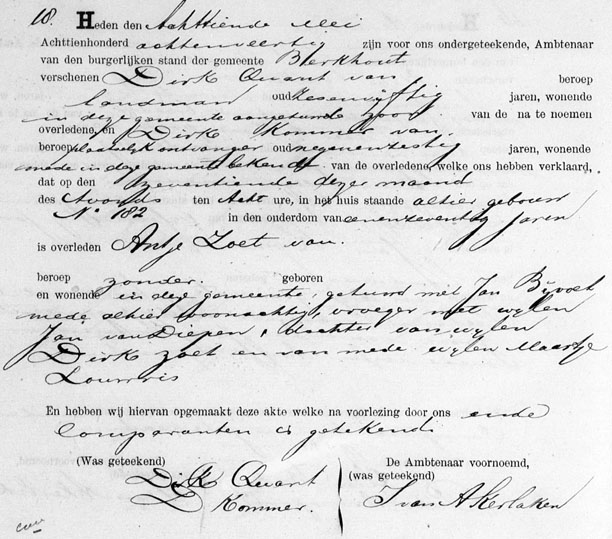 18. Heden den Achttiende Mei
Achttienhonderd achtenveertig zijn voor ons ondergeteekende, Ambtenaar
van den burgerlijken stand der gemeente Berkhout
verschenen Dirk Quant van beroep
landman oud zesenvijftig jaren, wonende
in deze gemeente aangetrouwde zoon van de na te noemen
overledene, en Dirk Kommer van
beroep plaatselijk ontvanger oud negenenzestig jaren, wonende
mede in deze gemeente bekende van de overledene, welke ons hebben verklaard,
dat op den zeventiende dezer maand
des Avonds ten Acht ure, in het huis staande alhier gebuurt
No 182 in den ouderdom van eenenzeventig jaren
is overleden Antje Zoet van
beroep zonder geboren
en wonende in deze gemeente, gehuwd met Jan Bijvoet
mede alhier woonachtig, vroeger met wijlen
Jan van Diepen, dochter van wijlen
Dirk Zoet en van mede wijlen Maartje
Lourens
En hebben wij hiervan opgemaakt deze akte welke na voorlezing door ons ende
Comparanten is getekend
(Was geteekend) De Ambtenaar voornoemd,
(was geteekend)
Dirk Quant
D Kommer. J van Akerlaken